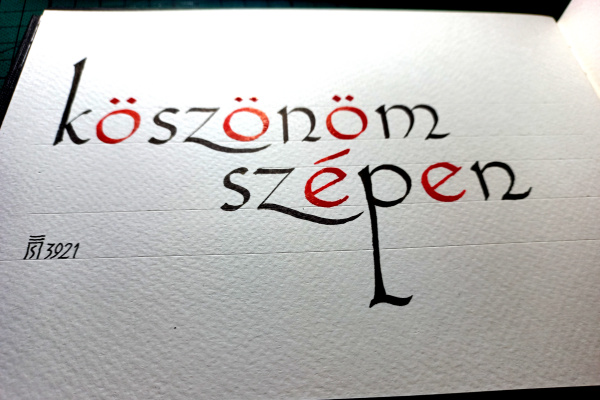 köszönöm
szépen
3921